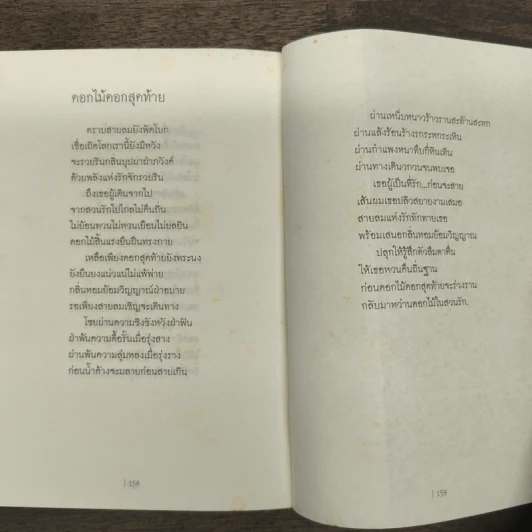 ดอกไม้ดอกสุดท้าย
ตราบสายลมยังพัดโบก
เชื่อเถิดโลกเรานี้ยังมีหวัง
จะรวยรินกลิ่นบุปผาฝ่าภวังค์
ด้วยพลังแห่งรักจักรวยริน
ถึงเธอผู้เดินจากไป
จากสวนรักไปไกลไม่คืนถิ่น
ไม่ย้อนทวนไม่หวนเยือนไม่ยลยิน
ดอกไม้สิ้นแรงยืนฝืนทรงกาย
เหลือเพียงดอกสุดท้ายยังทระนง
ยังยืนยงแน่วแน่ไม่แพ้พ่าย
กลิ่นหอมย้อมวิญญาณ์ฝ่าอบาย
รอเพียงสายลมเชิญจะเดินทาง
โชยผ่านความชิงชังหวังฝ่าฝัน
ฝ่าพ้นความดื้อรั้นเมื่อรุ่งสาง
ผ่านพ้นความลุ่มหลงเมื่อรุ่งราง
ก่อนน้ำค้างจะมลายก่อนสายเกิน
| 158
ผ่านเหน็บหนาวร้าวรานสะท้านสะทก
ผ่านแล้งร้อนร้างรกระหกระเหิน
ผ่านกำแพงหนาทึบที่หินเทิน
ผ่านทางเดินวกวนจนพบเธอ
เธอผู้เป็นที่รัก...ก่อนจะสาย
เส้นผมเธอปลิวสยายงามเสมอ
สายลมแห่งรักทักทายเธอ
พร้อมเสนอกลิ่นหอมย้อมวิญญาณ
ปลุกให้รู้สึกตัวลืมตาตื่น
ให้เธอหวนคืนถิ่นฐาน
ก่อนดอกไม้ดอกสุดท้ายจะร่วงราน
กลับมาหว่านดอกไม้ในสวนรัก.
| 159